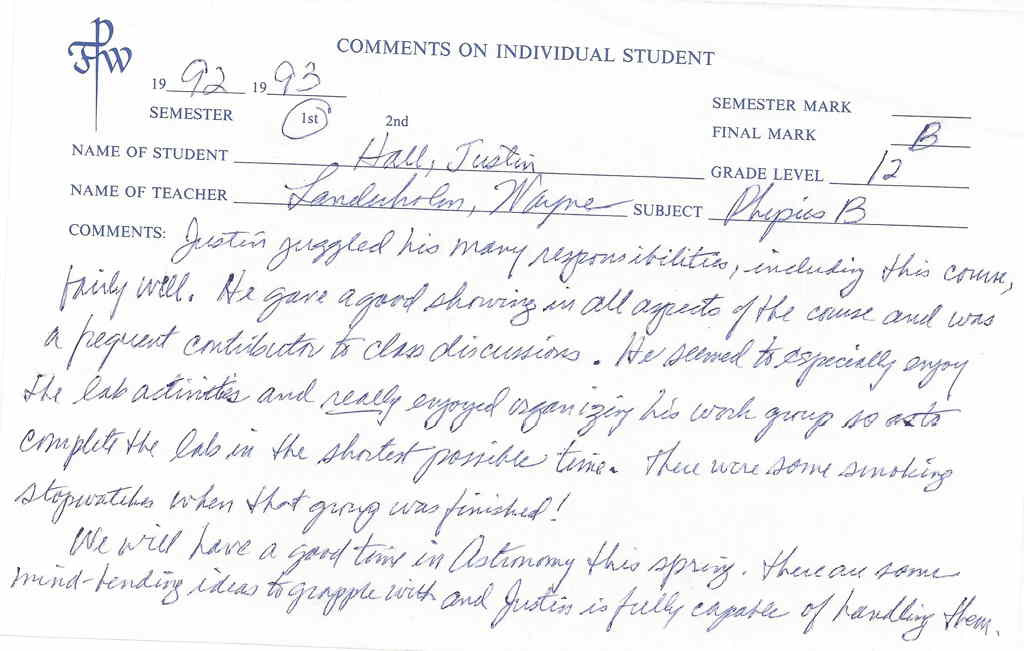 FPW
COMMENTS ON INDIVIDUAL STUDENT
19 92 19 93
SEMESTER 1st 2nd
SEMESTER MARK
FINAL MARK B
NAME OF STUDENT Hall, Justin
GRADE LEVEL 12
NAME OF TEACHER Landerholm, Wayne SUBJECT Physics B
COMMENTS: Justin juggled his many responsibilities, including this course,
fairly well. He gave a good showing in all aspects of the course and was
a frequent contributor to class discussions. He seemed to especially enjoy
the lab activities and really enjoyed organizing his work group so as to
complete the lab in the shortest possible time. There were some smoking
stopwatches when that group was finished!
We will have a good time in Astronomy this spring. There are some
mind-bending ideas to grapple with and Justin is fully capable of handling them.